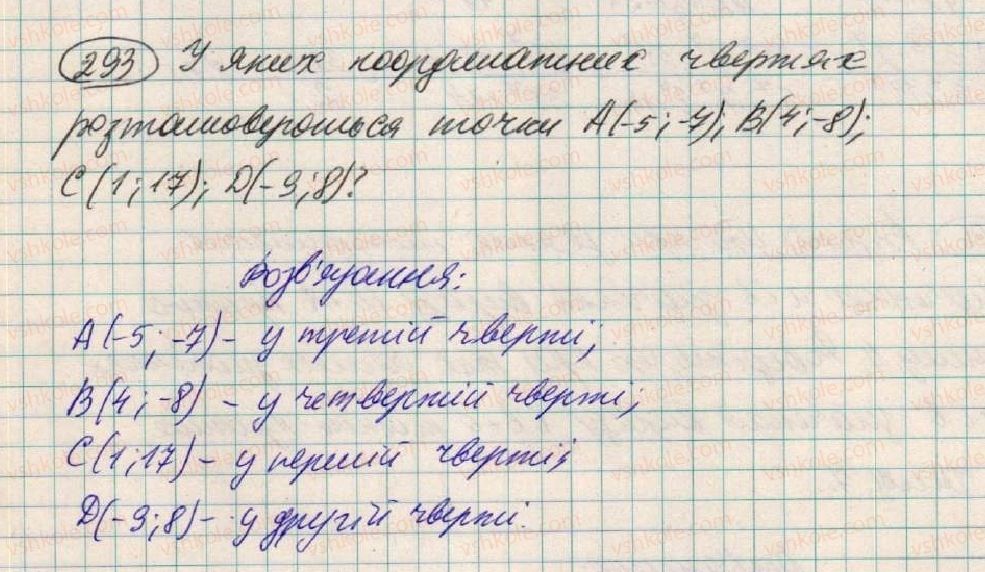 293 У яких координатних чвертях
розташовуються точки A(-5;-7); B(4;-8);
C(1;17); D(-9;8)?
Розв'язання:
A(-5;-7) - у третій чверті;
B(4;-8) - у четвертій чверті;
C(1;17) - у першій чверті;
D(-9;8) - у другій чверті.